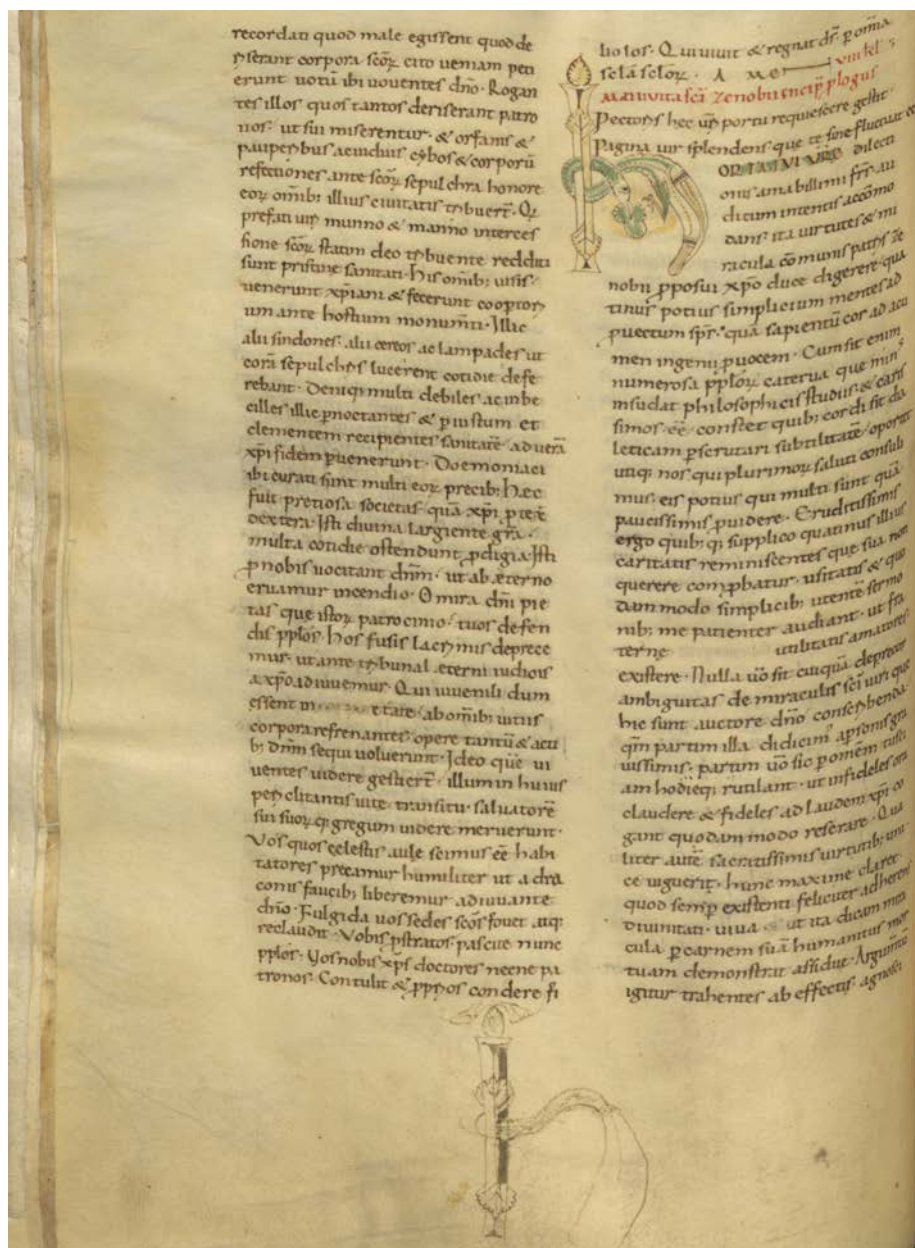 recordati quod male egissent quod de
serant corpora scōꝝ cito ueniam peti
erunt uotū ibi uouentes dn̄o · Rogan
tes illos quos tantos deriserant patro
nos · ut sui miserentur · & orfanis &
pauperibus ac uiduis cybos & corporū
refectiones ante scōꝝ sepulchra honore
eoꝝ om̄ib; illius ciuitatis tribuerī · Qꝝ
prefati uiri munno & manno interces
sione scōꝝ statim deo tribuente redditi
sunt pristine sanitati · his om̄ib; uisis ·
uenerunt xp̄iani & fecerunt cooptori
um ante hostium monum̄ti · Illic
alii sindones · alii cereos ac lampades ut
corā sepulchris lucerent cotidie defe
rebant · Deniq; multi debiles ac inbe
cilles illic ꝑnoctantes & ꝑ iustum et
clementem recipientes sanitatē · ad uerā
xp̄i fidem ꝑuenerunt · Doemoniaci
ibi curati sunt multi eoꝝ precib; hæc
fuit pretiosa societas quā xp̄i ꝓteḡ
dextera · Isti diuina largiente gr̄a ·
multa cotidie ostendunt ꝓdigia · Isti
ꝓ nobis uocitant dn̄m · ut ab æterno
eruamur incendio · O mira dn̄i pie
tas que istoꝝ patrocinio · tuos defen
dis pplos · hos fusis lacrimis deprece
mur · ut ante tribunal æterni iudicis
a xp̄o adiuuemur · Qui iuuenili dum
essent in etate · ab om̄ib; uitiis
corpora refrenantes · opere tantū & acu
b; dn̄m sequi uoluerunt · Ideo que ui
uentes uidere gestierī · illum in huius
periclitantis uite transitu · saluatorē
sui suoꝝ q; gregum uidere meruerunt ·
Vos quos celestis aule scimus eē habi
tatores precamur humiliter ut a dra
conis faucib; liberemur adiuuante
dn̄o · Fulgida uos sedes scōs fouet atq;
reclaudit · Vobis ꝓstratos pascite nunc
pplos · Vos nobis xp̄s doctores necne pa
tronos · Contulit & ꝓprios condere fi
liolos · Qui uiuit & regnat ds̄ · ꝑ om̄ia
sclā sclōꝝ · A M E
viii kl
Mai uita sc̄i Zenobii incip̄ ꝓlogus
Pectoris hec ur̄i portu requiescere gestit ·
Pagina uir splendens que te sine fluctuat
ORTATUI UR̄E dilecti
onis amabillimi fr̄s au
ditum intentis accōmo
dans · ita uirtutes & mi
racula cōmunis patris Ze
nobii ꝓposui xp̄o duce digerere · qua
tinus potius simplicium mentes ad
ꝓuectum spr̄ · quā sapientū cor ad acu
men ingenii ꝓuocem · Cum sit enim
numerosa pploꝝ caterua que min
insudat philosophicis studiis · & caris
simos eē · constet quib; cordi sit dia
leticam ꝑscrutari subtilitatē · oportet
utiq; nos qui plurimoꝝ saluti consuli
mus · eis potius qui multi sunt quā
paucissimis ꝓuidere · Eruditissimis
ergo quib; q; supplico quatinus illius
caritatis reminiscentes que sua non
querere comꝓbatur · usitatis & quo
dam modo simplicib; utentē sermo
nib; me patienter audiant · ut fra
terne utilitatis amatores
existere · Nulla uō sit cuiquā deprecor
ambiguitas de miraculis sc̄i uiri que
hic sunt auctore dn̄o conscribenda ·
qm̄ partim illa didicim' a ꝑsonis gra
uissimis · partim uō sic ꝑ omem tusci
am hodieq; rutilant · ut infideles ora
claudere & fideles ad laudem xp̄i co
gant quodam modo reserare · Qua
liter autē sacratissimis uirtutib; uni
ce uiguerit · hunc maxime claret
quod semꝑ existenti feliciter adherens
diuinitati · uiua ut ita dicam mira
cula ꝑ carnem suā humanitus mor
tuam demonstrat assidue · Argumtū
igitur trahentes ab effectis · agnosci